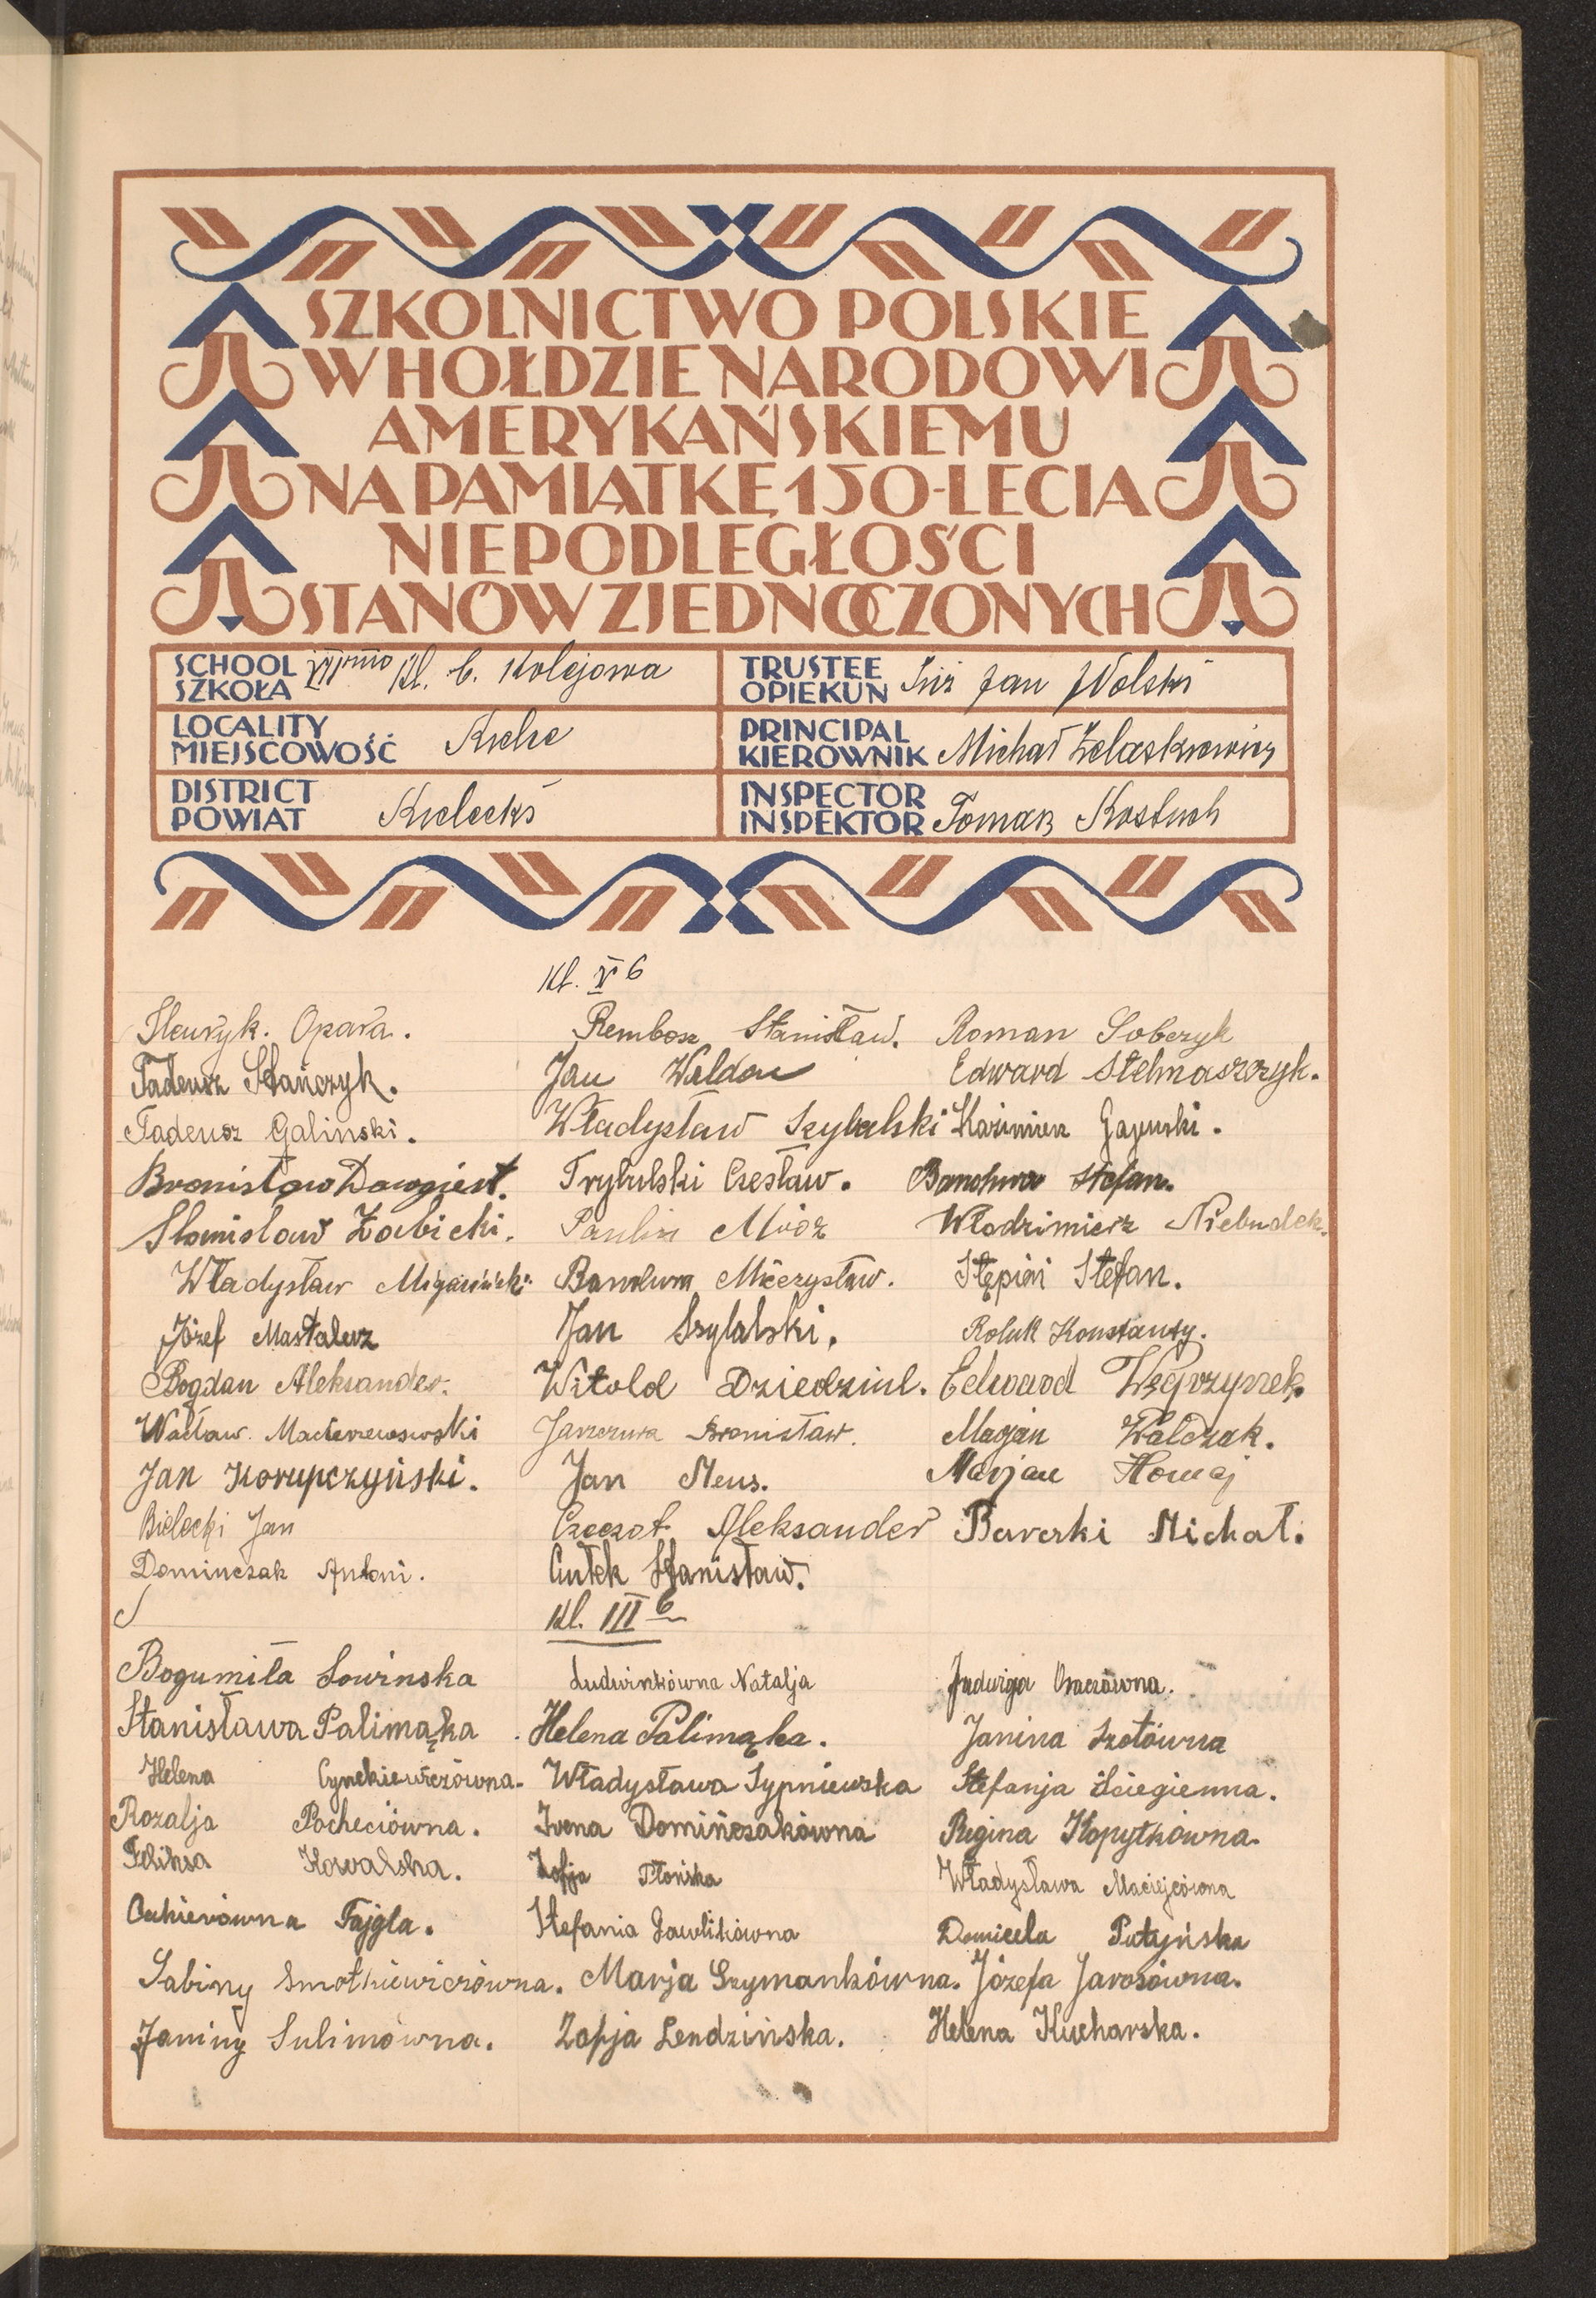 SZKOLNICTWO POLSKIE
W HOŁDZIE NARODOWI
AMERYKAŃSKIEMU
NA PAMIĄTKĘ 150-LECIA
NIEPODLEGŁOŚCI
STANÓW ZJEDNOCZONYCH
SCHOOL
SZKOŁA VII mio Kl. b. Kolejowa
TRUSTEE
OPIEKUN Inż Jan Wolski
LOCALITY
MIEJSCOWOŚĆ Kielce
PRINCIPAL
KIEROWNIK Michał Żelaskiewicz
DISTRICT
POWIAT Kielecki
INSPECTOR
INSPEKTOR Tomasz Kostuch
Kl. V b
Henryk. Opara. Rembosz Stanisław. Roman Sobczyk
Tadeusz Stańczyk. Jan Waldon Edward Stelmaszczyk.
Tadeusz Galinski. Władysław Szybalski Kazimierz
Bronisław Dowgiert. Trybulski Czesław. Bandura Stefan.
Stanisław Żabicki. Paulin Mróz Włodzimierz Niebudek.
Władysław Bandura Mieczysław. Stępień Stefan.
Józef Mastalerz Jan Szybalski. Roluk Konstanty.
Bogdan Aleksander. Witold Dziedziul. Edward Węgrzynek.
Wacław. Macierzewswski Janczura Bronisław. Marjan Walczak.
Jan Korupczyński. Jan Meus. Marjan Homaj
Bielecki Jan Czeczot Aleksander Barcski Michał.
Dominczak Antoni. Cutek Stanisław.
Kl. III b
Bogumiła Sowinska Ludwinkówna Natalja Jadwiga Osaczówna.
Stanisława Palimąka Helena Palimąka. Janina Szotówna
Helena Cynekiewiczówna. Władysława Sypniewska Stefanja Ściegienna.
Rozalja Pocheciówna. Irena Domińczakówna Regina Kopytkówna.
Feliksa Kowalska. Zofja Płońska Władysława Maciejcówna
Cukierówna Fajgla. Stefania Gawlikówna Domicela Putyńska
Sabiny Smotkiewiczówna. Marja Szymankówna. Józefa Jarosówna.
Janiny Sulimówna. Zofja Lendzińska. Helena Kucharska.